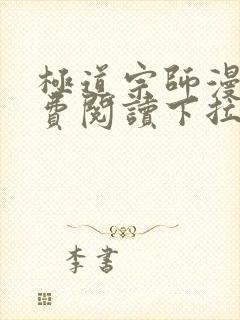 極道宗師漫
費閱讀下拉
李書